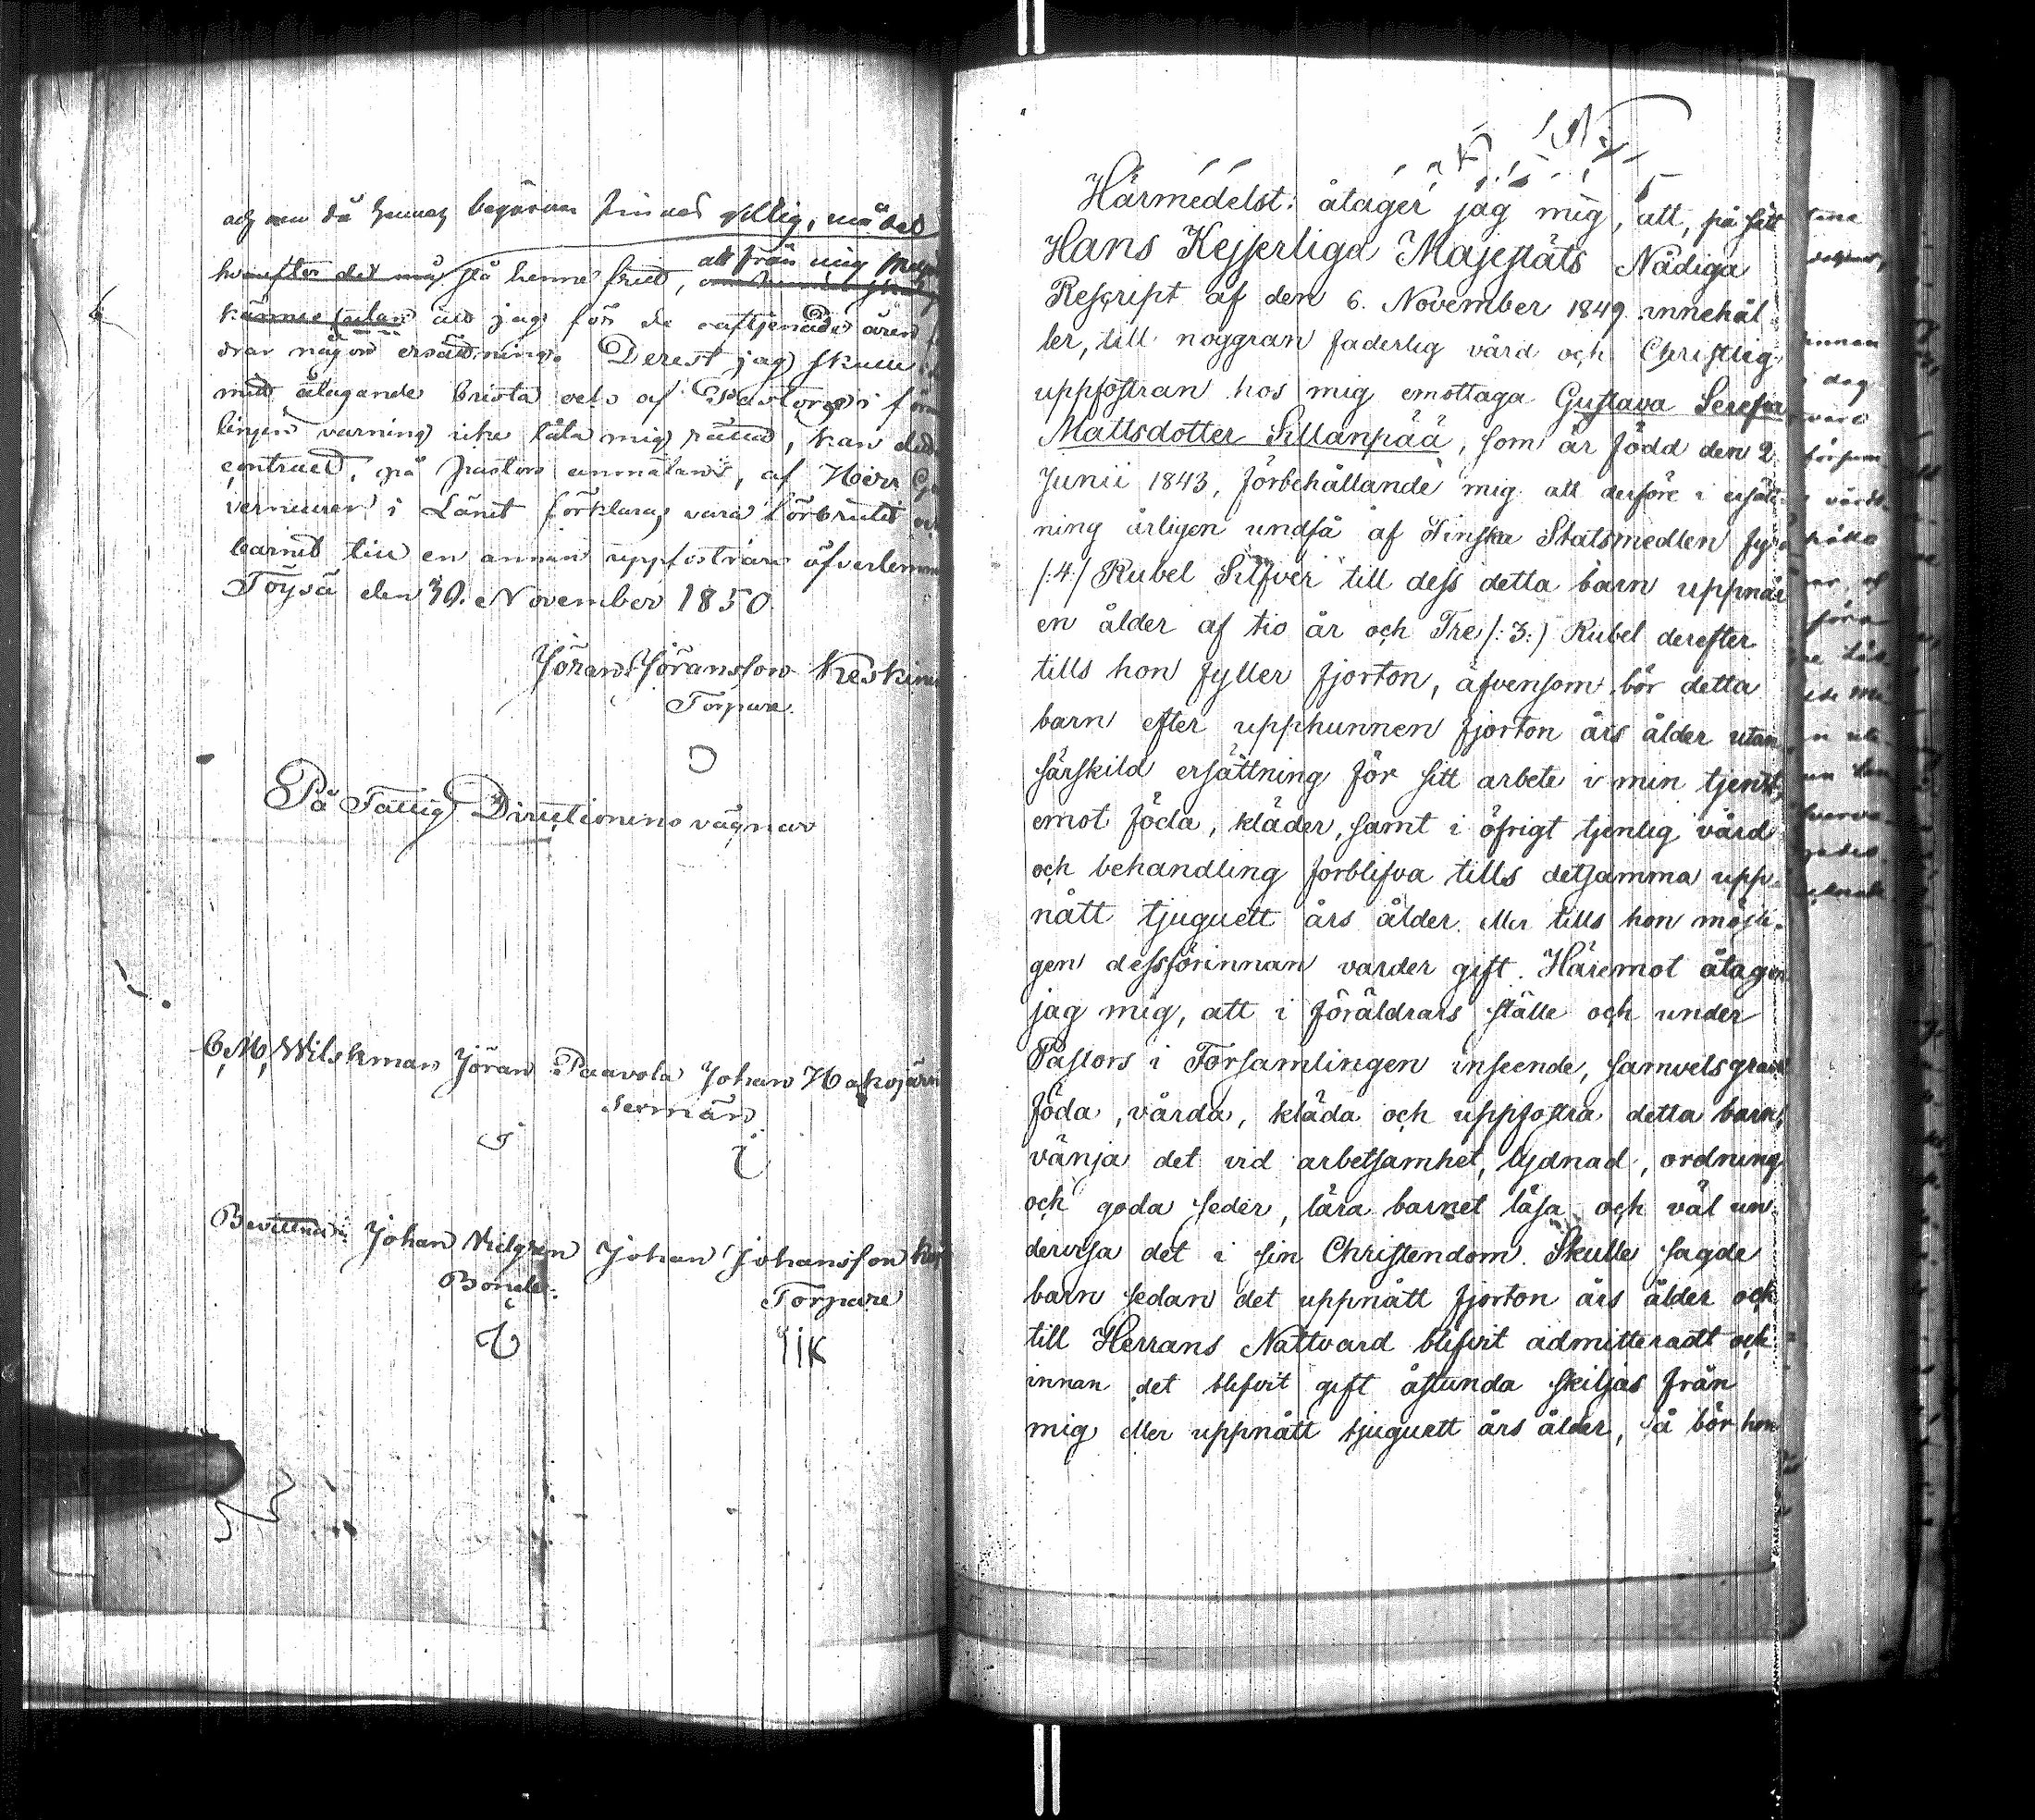 begäran finnes villig, må det
hvarefter det må stå henne fritt,
att från mig
utan att jag för de aftjenade åren
drar någon ersättning. Derest jag skulle
mitt åtagande brista och af Pastor i förs
lingen varning icke låta mig rätta, kan detta
contract, på pastors anmälan, af Herr Gu
verneuren i Länet förklaras vara förbrutet och
barnet till en annan uppfostrare öfverlemna
Töysä den 30. November 1850.
Jöran Jöransson Keskine
Torpare.
På Fattig Directionens vägnar
C. M. Wilskman Jöran Paavola Johan Hakojärvi
sexmän
Bevittna: Johan Johan Johansson
Bonde. Torpare
IIK
Härmedelst åtager jag mig, att, på sätt
Hans Kejserliga Majestäts Nådiga
Rescript af den 6. November 1849 innehål
ler, till noggran faderlig vård och Christlig
uppfostran hos mig emottaga Gustava Serefia
Mattsdotter Sillanpää, som är född den 2
Junii 1843, förbehållande mig att derföre i ersätt-
ning årligen undfå af Finska Statsmedlen fyra
/:4:/ Rubel Silfver till dess detta barn uppnår
en ålder af tio år och Tre /:3:/ Rubel derefter
tills hon fyller fjorton, äfvensom bör detta
barn efter upphunnen fjorton års ålder utan
särskild ersättning för sitt arbete i min tjenst,
emot föda, kläder, samt i öfrigt tjenlig vård
och behandling förblifva tills detsamma upp-
nått tjuguett års ålder eller tills hon möjli-
gen dessförinnan varder gift. Häremot åtager
jag mig, att i föräldrars ställe och under
Pastors i Församlingen inseende, samvetsgrant
föda, vårda, kläda och uppfostra detta barn,
vänja det vid arbetsamhet, lydnad, ordning
och goda seder, lära barnet läsa och väl un-
dervisa det i sin Christendom. Skulle sagde
barn sedan det uppnått fjorton års ålder och
till Herrans Nattvard blifvit admitteradt och
innan det blifvit gift åstunda skiljas från
mig eller uppnått tjuguett års ålder, så bör hon